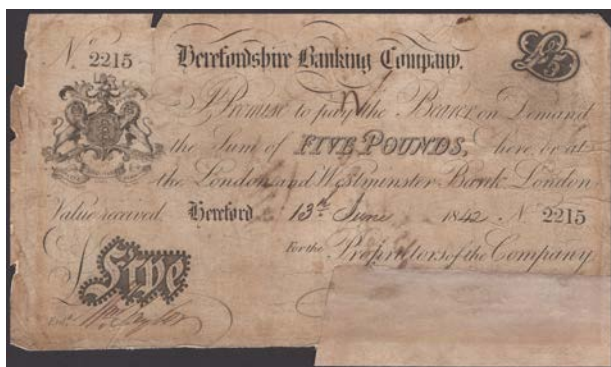 N. 2215 Herefordshire Banking Company. £5
I Promise to pay the Bearer on Demand
the Sum of FIVE POUNDS, here or at
the London and Westminster Bank London
Value received Hereford 13th June 1842 N. 2215
For the Proprietors of the Company
£ Five